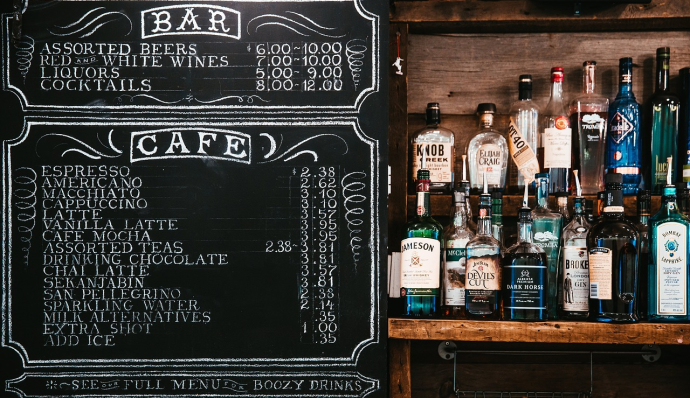 BAR
ASSORTED BEERS $ 6.00~10.00
RED AND WHITE WINES 7.00~10.00
LIQUORS 5.00~ 9.00
COCKTAILS 8.00~12.00
CAFE
ESPRESSO $ 2.38
AMERICANO 2.62
MACCHIATO 3.10
CAPPUCCINO 3.10
LATTE 3.57
VANILLA LATTE 3.95
CAFE MOCHA 3.95
ASSORTED TEAS 2.38~3.81
DRINKING CHOCOLATE 3.81
CHAI LATTE 3.57
SEKANJABIN 3.81
SAN PELLEGRINO 2.38
SPARKLING WATER 2.14
MILK ALTERNATIVES .35
EXTRA SHOT 1.00
ADD ICE .35
SEE OUR FULL MENU FOR BOOZY DRINKS
KNOB CREEK
ELIJAH CRAIG
40
JAMESON
DEVIL'S CUT
DARK HORSE
BROKER'S
BOMBAY SAPPHIRE